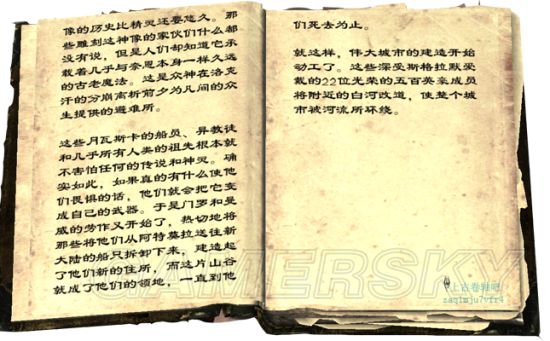 像的历史比精灵还要悠久。那
些雕刻这神像的家伙们什么都
没有说，但是人们却知道它承
载着几乎与奈恩本身一样久远
的古老魔法。这是众神在洛克
汗的分崩离析前夕为凡间的众
生提供的避难所。
这些月瓦斯卡的船员、异教徒
和几乎所有人类的祖先根本就
不害怕任何的传说和神灵。确
实如此，如果真的有什么使他
们畏惧的话，他们就会把它变
成自己的武器。于是门罗和曼
威的劳作又开始了，热切地将
那些将他们从阿特莫拉送往新
大陆的船只拆卸下来，建造起
了他们新的住所，而这片山谷
就成了他们的领地，一直到他
们死去为止。
就这样，伟大城市的建造开始
动工了。这些深受斯格拉默受
戴的22位光荣的五百英豪成员
将附近的白河改道，使整个城
市被河流所环绕。
GAMERSKY
上古卷轴吧
zaqimju7vfr4